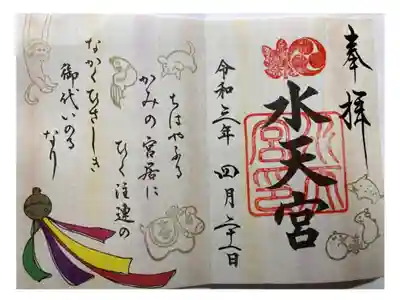 奉拝
水天宮
令和三年 四月二十一日
ちはやふる
かみの宮居に
ひく注連の
なかくひさしき
御代いのる
なり